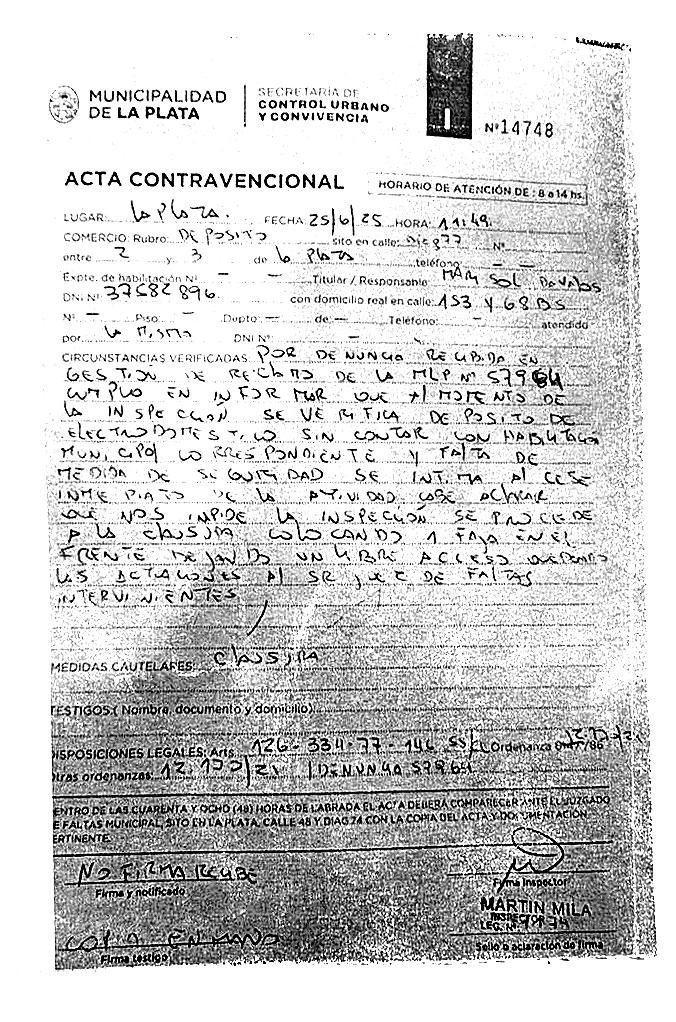 MUNICIPALIDAD
DE LA PLATA
SECRETARÍA DE
CONTROL URBANO
Y CONVIVENCIA
Nº14748
ACTA CONTRAVENCIONAL
HORARIO DE ATENCIÓN DE : 8 a 14 hs.
LUGAR: LA PLATA. FECHA 25/6/25 HORA: 11:49
COMERCIO: Rubro: DEPOSITO sito en calle: Diag 77 Nº
entre 2 y 3 de La PLATA teléfono -
Expte. de habilitación Nº - - Titular / Responsable MARY SOL DAVALOS
DNI. Nº 37582896 con domicilio real en calle: 153 Y 68 BS
Nº - Piso: - Depto: - de: - Teléfono: - atendido
por LA MISMA DNI Nº -
CIRCUNSTANCIAS VERIFICADAS: POR DENUNCIA RECIBIDA EN
GESTION DE RECLAMO DE LA MLP Nº 57964
CUMPLO EN INFORMAR QUE AL MOMENTO DE
LA INSPECCIÓN SE VERIFICA DEPOSITO DE
ELECTRODOMESTICO SIN CONTAR CON HABILITACIÓN
MUNICIPAL CORRESPONDIENTE Y FALTA DE
MEDIDA DE SEGURIDAD SE INTIMA AL CESE
INMEDIATO DE LA ACTIVIDAD CABE ACLARAR
QUE NOS IMPIDE LA INSPECCIÓN SE PROCEDE
A LA CLAUSURA COLOCANDO 1 FAJA EN EL
FRENTE DEJANDO UN LIBRE ACCESO QUEDANDO
LAS ACTUACIONES AL SR JUEZ DE FALTAS
INTERVINIENTES
MEDIDAS CAUTELARES: CLAUSURA
TESTIGOS:( Nombre, documento y domicilio)
DISPOSICIONES LEGALES: Arts. 126-334-77-146 Ordenanza
Otras ordenanzas: 12.133/21 / DENUNCIA 57964
ENTRO DE LAS CUARENTA Y OCHO (48) HORAS DE LABRADA EL ACTA DEBERÁ COMPARECER ANTE EL JUZGADO
E FALTAS MUNICIPAL, SITO EN LA PLATA, CALLE 48 Y DIAG 74 CON LA COPIA DEL ACTA Y DOCUMENTACIÓN
ERTINENTE.
NO FIRMA RECIBE
Firma y notificado
Firma Inspector
MARTIN MILA
INSPECTOR
LEG. Nº
COPIA EN MANO
Firma testigo
Sello o aclaración de firma